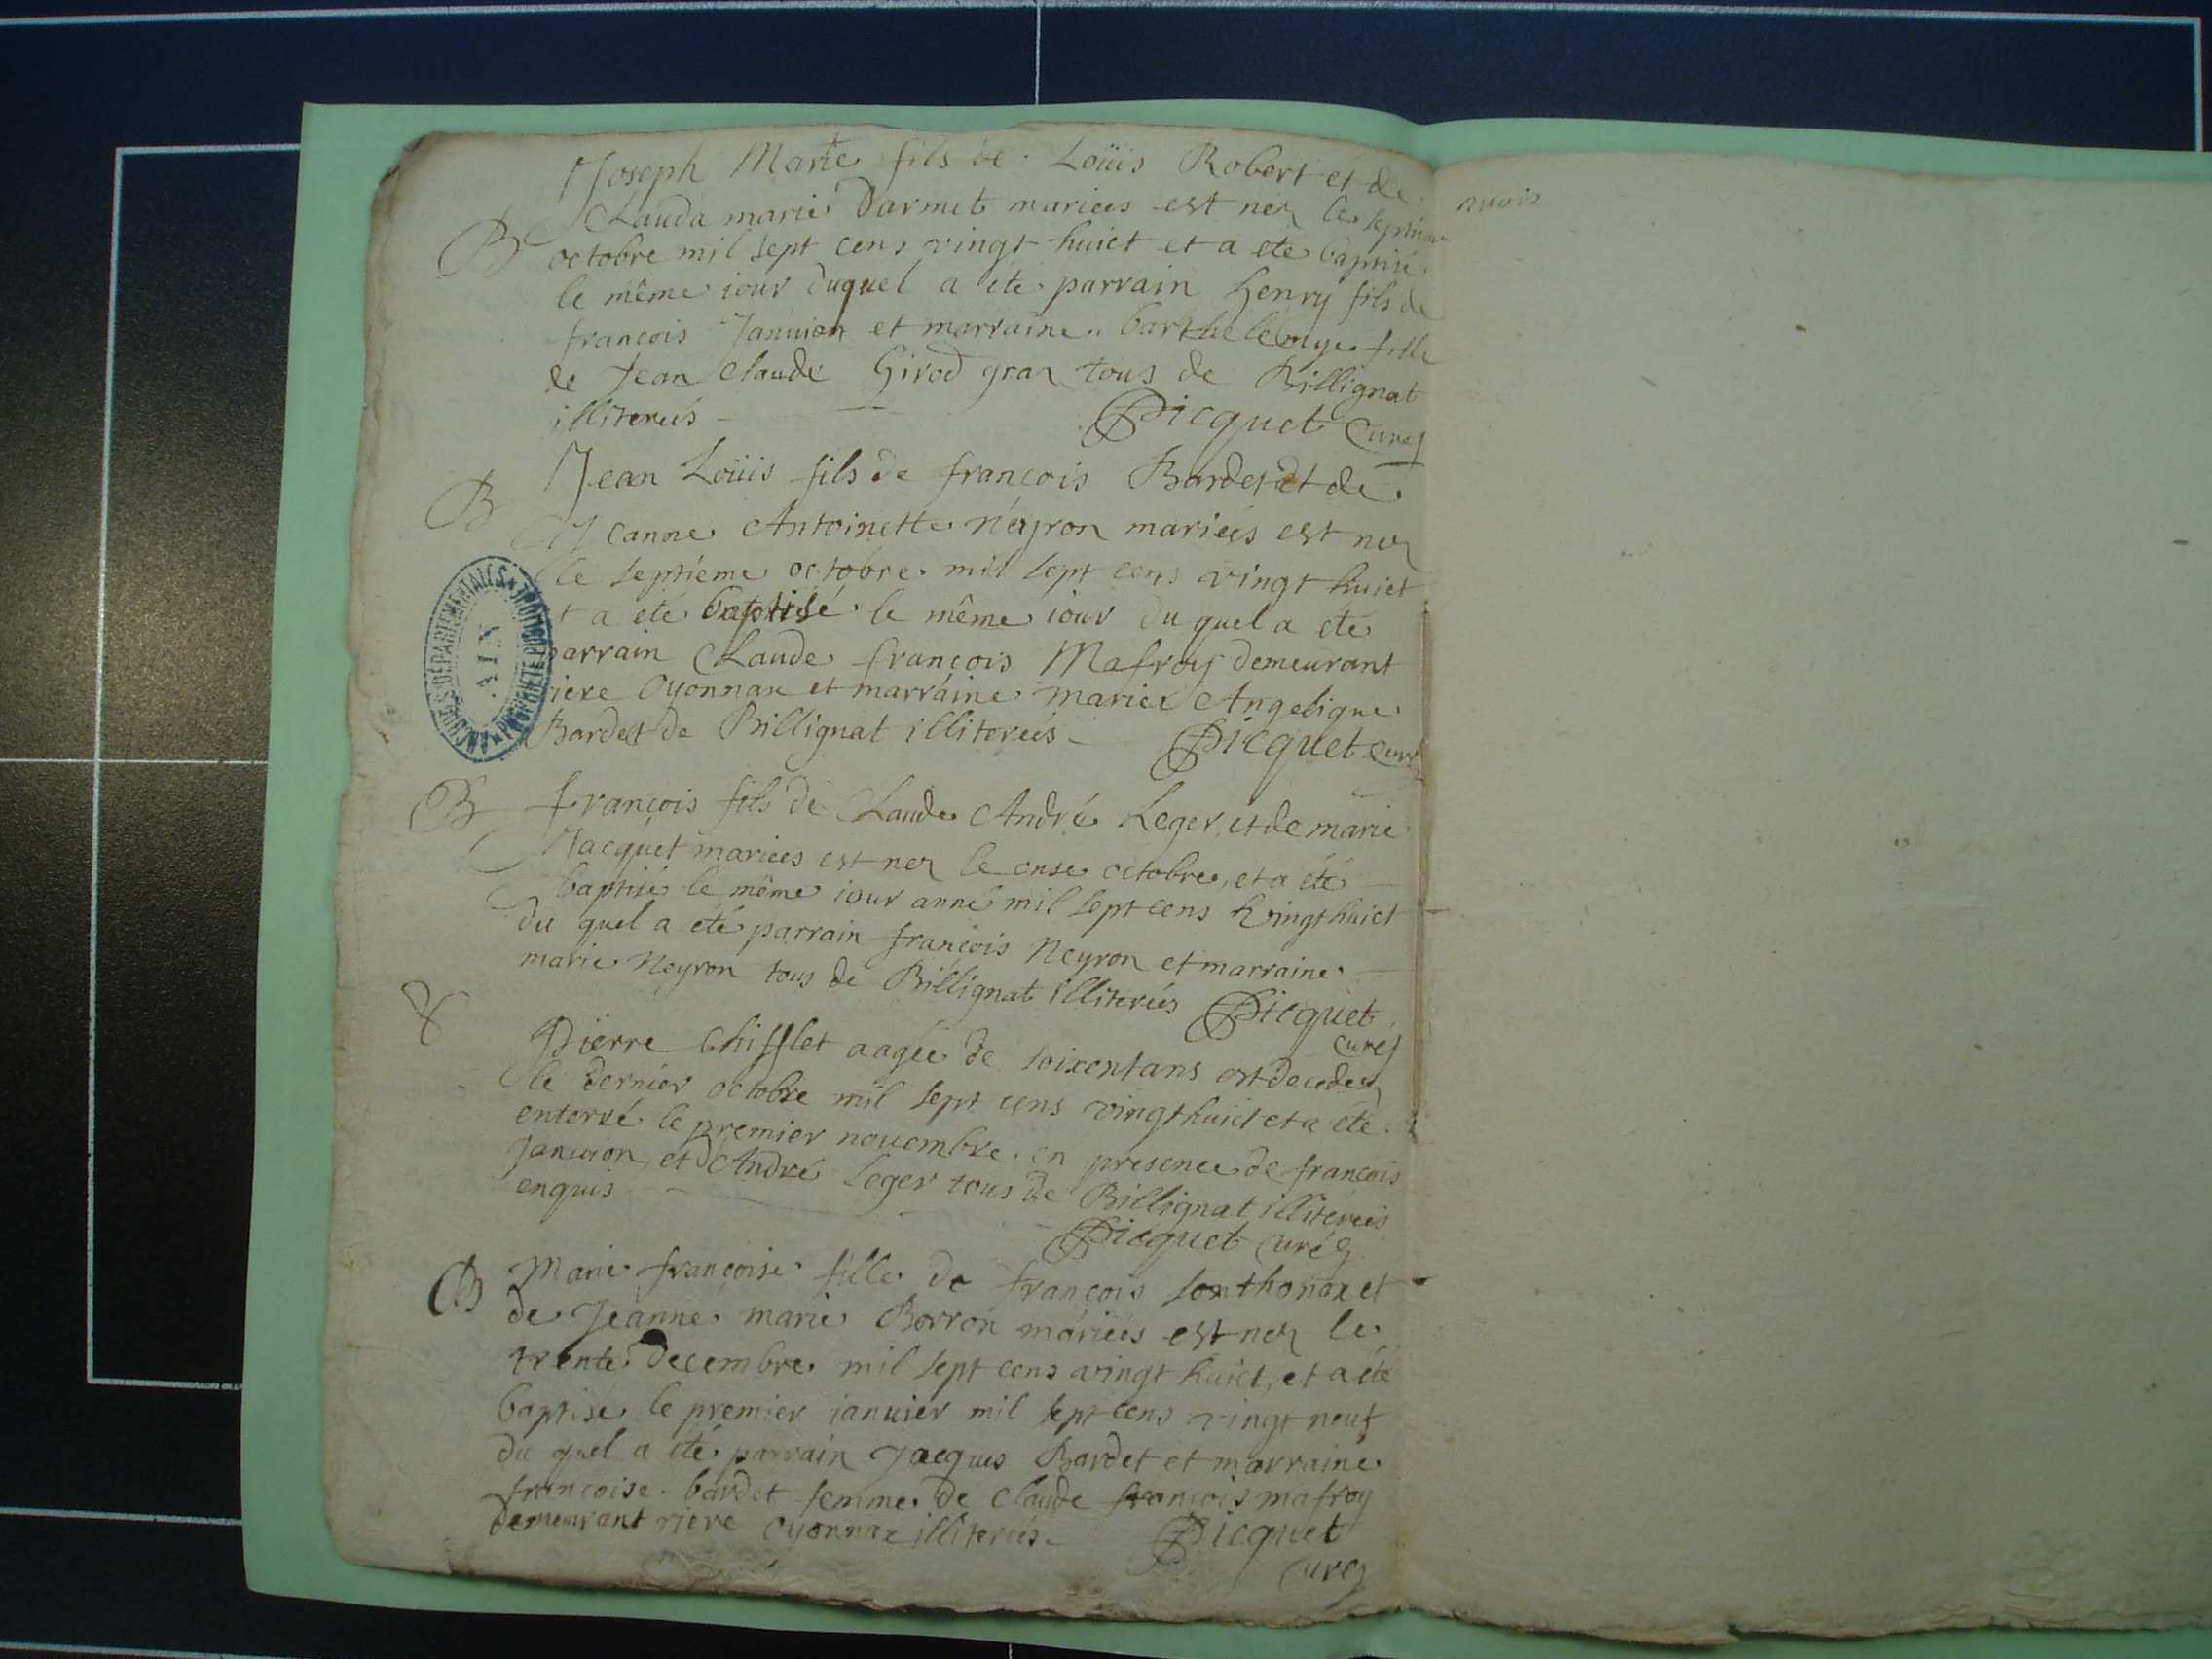 Joseph Marie fils de Loüis Robert et de
Clauda marie Darmet mariees est nez le septieme
B octobre mil sept cens vingt huict et a ete baptisé
le même iour duquel a ete parrain henry fils de
françois Januion et marraine barthelemye fille
de Jean Claude Girod gran tous de Billignat
illiterés Picquet curez
Jean Loüis fils de françois Bardet et de
B
Jeanne Antoinette neyron mariees est nez
le septiéme octobre mil sept cens vingt huict
t a eté baptisé le même iour du quel a eté
parrain Claude françois Mafroy demeurant
riere Oyonnax et marraine marie Angelique
Bardet de Billignat illiterées Picquet curé
B françois fils de Claude André Leger et de marie
Jacquet mariees est nez le onse octobre, et a été
baptisé le même iour anné mil sept cens vingt huict
du quel a eté parrain françois Neyron et marraine
marie Neyron tous de Billignat illiterées Picquet
curez
Pierre Chifflet aagée de soixentans est decedez
le dernier octobre mil sept cens vingt huict et a ete
enterré le premier nouembre en presence de françois
Januion et André Leger tous de Billignat illiterées
enquis
Picquet curéz
B Marie françoise fille de françois Sonthonax et
de Jeanne marie Borron mariées est nez le
trente decembre mil sept cens vingt huict, et a été
baptisé le premier ianuier mil sept cens vingt neuf
du quel a eté parrain Jacques Bardet et marraine
françoise bardet femme de Claude françois mafroy
demeurant riere Oyonnax illiterées Picquet
curez
ARCHIVES DÉPARTEMENTALES
AIN
PROPRIETE PUBLIQUE